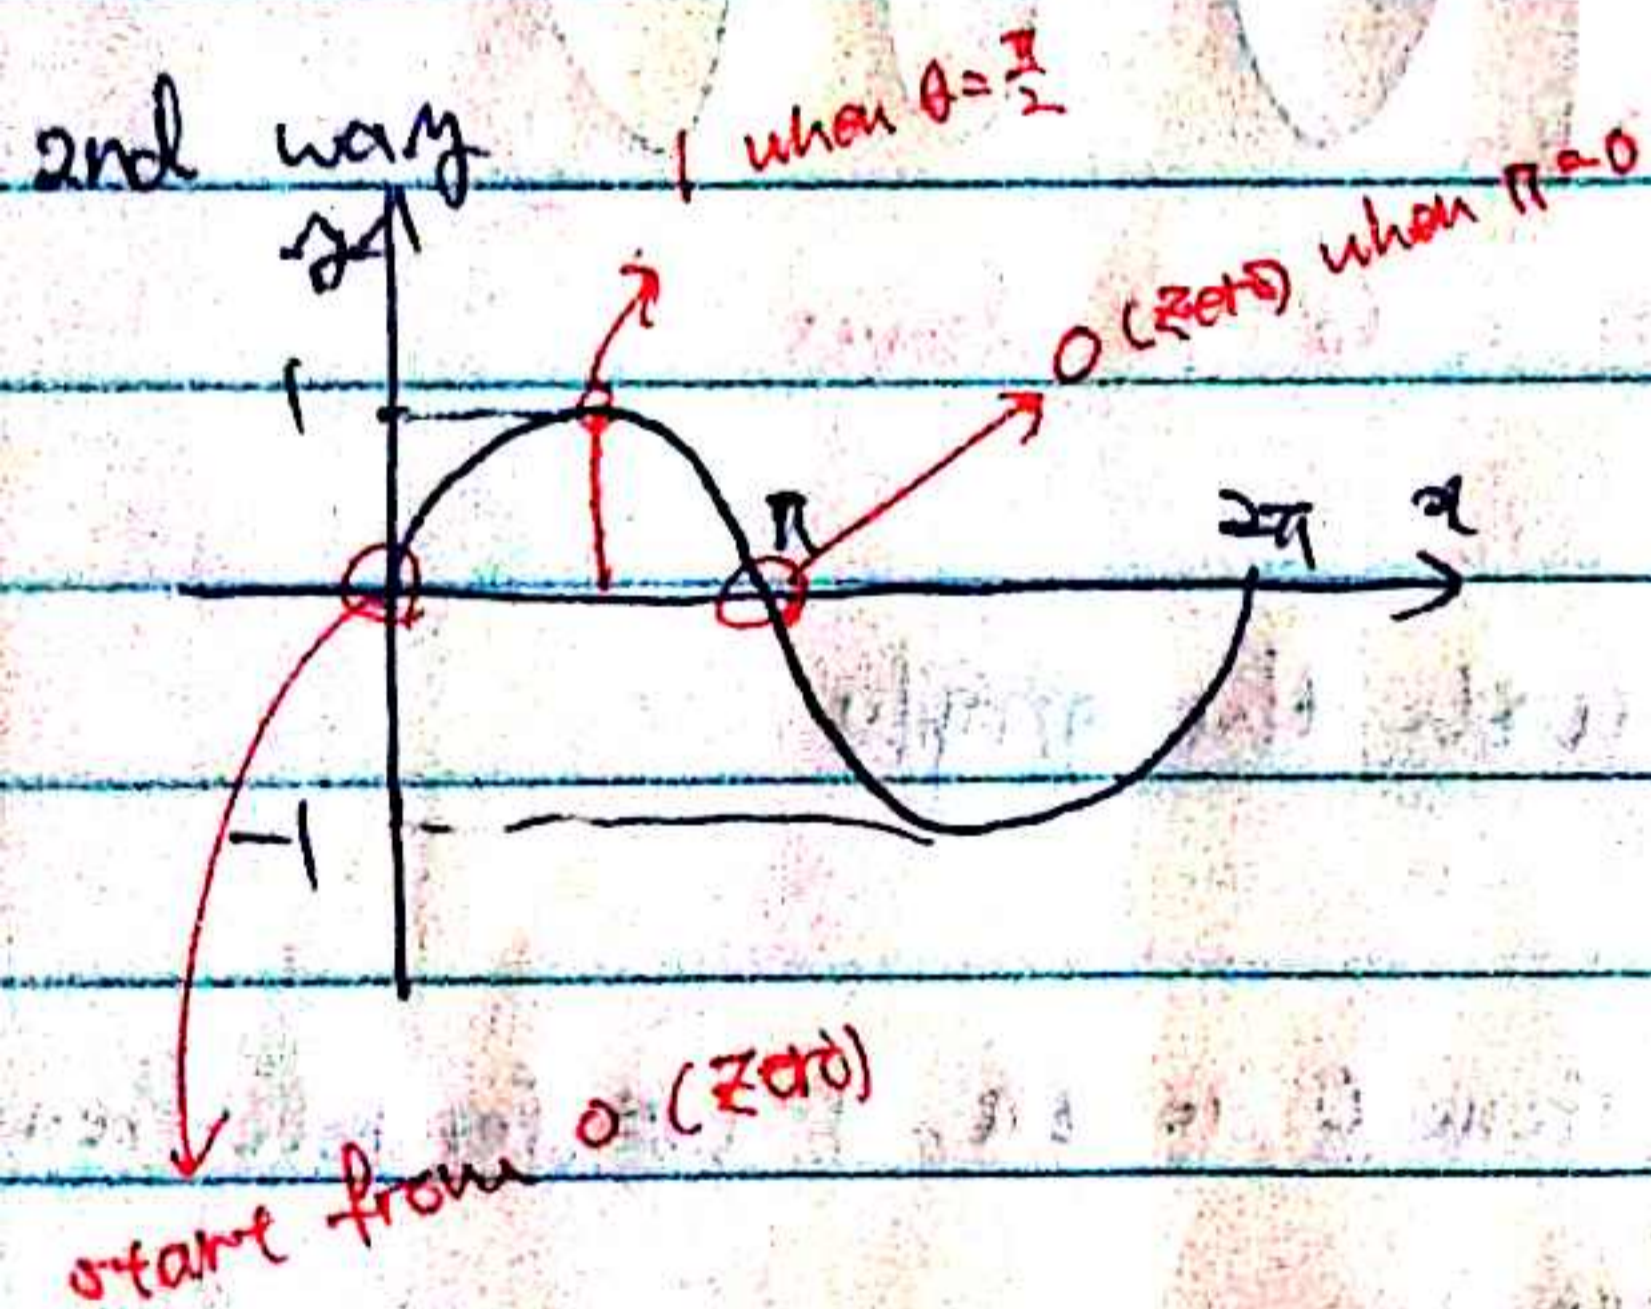 2nd way
1 when θ = π/2
y
0 (zero) when π = 0
1
π
2π
x
-1
start from 0 (zero)